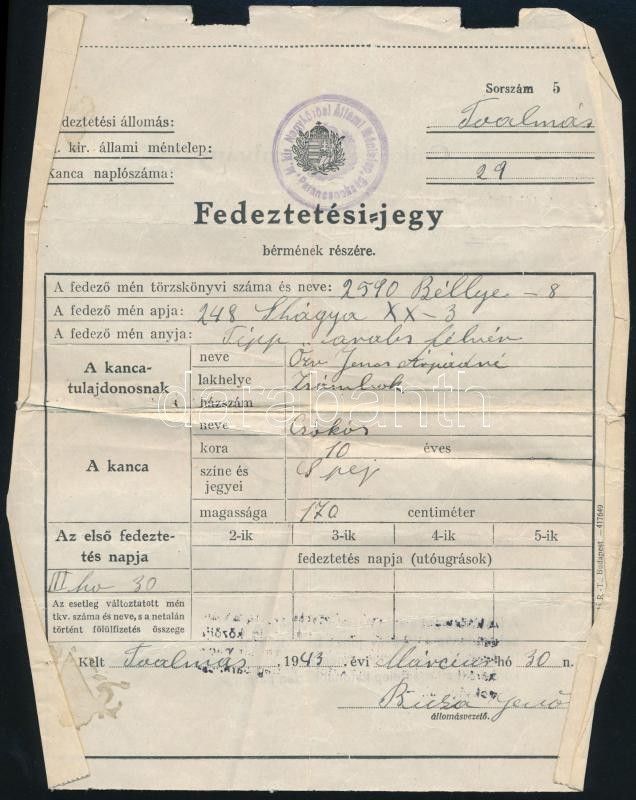 Sorszám 5
edeztetési állomás: Tóalmás
kir. állami méntelep:
Kanca naplószáma: 29
Fedeztetési-jegy
bérmének részére.
A fedező mén törzskönyvi száma és neve: 2590 Béllye - 8
A fedező mén apja: 248 Shagya XX-3
A fedező mén anyja: Tipp arabs félvér
A kanca-tulajdonosnak
neve Özv Jenes Árpádné
lakhelye Zsámbok
házszám
A kanca
neve Csókós
kora 10 éves
színe és jegyei S pej
magassága 170 centiméter
Az első fedeztetés napja
2-ik 3-ik 4-ik 5-ik
fedeztetés napja (utóugrások)
III hó 30
Az esetleg változtatott mén
tkv. száma és neve, s a netalán
történt fölülfizetés összege
Kelt Tóalmás, 1943. évi Március hó 30 n.
Búza Jenő
állomásvezető.
R.-T., Budapest. — 417640
darabanth